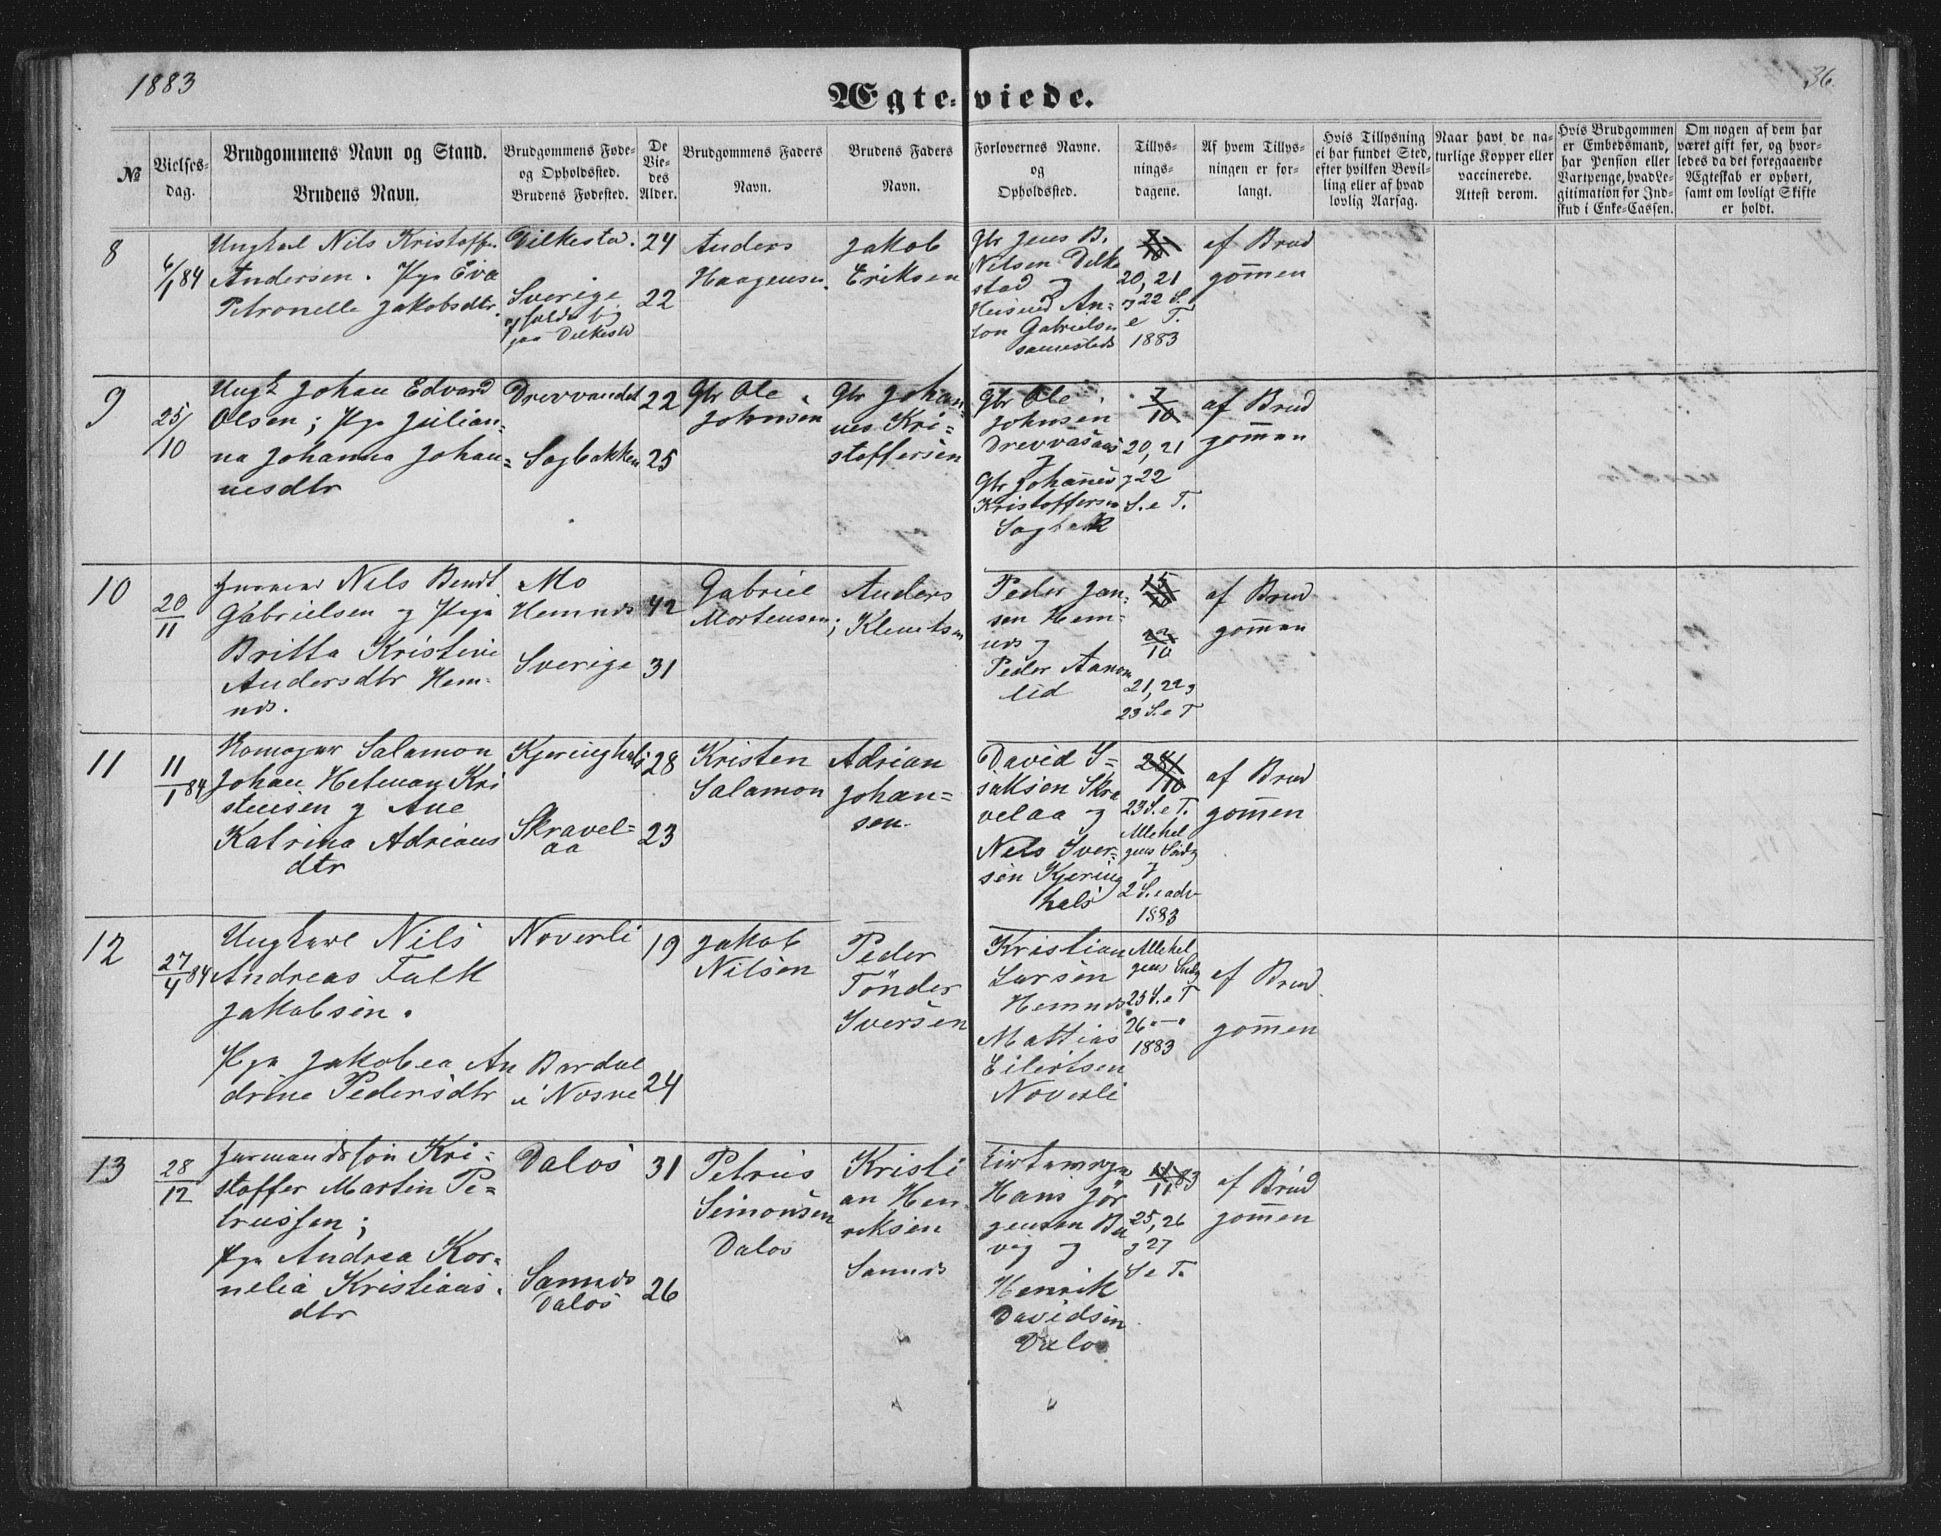 1883
36
Ægteviede.
№
Vielses-
dag.
Brudgommens Navn og Stand.
Brudens Navn.
Brudgommens Føde-
og Opholdssted.
Brudens Fødested.
De
Vie-
des
Alder.
Brudgommens Faders
Navn.
Brudens Faders
Navn.
Forlovernes Navne.
og
Opholdssted.
Tillys-
nings-
dagene.
Af hvem Tillys-
ningen er for-
langt.
Hvis Tillysning
ei har fundet Sted,
efter hvilken Bevil-
ling eller af hvad
lovlig Aarsag.
Naar havt de na-
turlige Kopper eller
vaccinerede.
Attest derom.
Hvis Brudgommen
er Embedsmand,
har Pension eller
Vartpenge, hvad Le-
gitimation for Ind-
skud i Enke-Cassen.
Om nogen af dem har
været gift før, og hvor-
ledes da det foregaaende
Ægteskab er ophørt,
samt om lovligt Skifte
er holdt.
8
6/1 84
Ungkarl Nils Kristoffer
Andersen. Pige Eva
Petronelle Jakobsdtr.
Dilkestad.
Sverige
paa Dilkestd
24
22
Anders
Haagensen.
Jakob
Eriksen
Gbr Jens B.
Nilsen Dilke
stad og
Husmd An-
ton Gabrielsen
sammesteds
20, 21
og 22 S.
e T.
1883
af Brud
gom̄en
9
25/10
Ungk Johan Edvard
Olsen; Pige Julian-
na Johanna Johan=
nesdtr
Drevvandet
Sagbakken
22
25
Gbr Ole
Johnsen
Gbr Johan-
nes Kri=
stoffersen
Gbr Ole
Johnsen
Drevvasaas
og
Gbr Johan̄es
Kristoffersen
Sagbakk
7/10
20, 21
og 22
S. e T.
af Brud
gom̄en
10
20/11
Nils Bendt
Gabrielsen og Pige
Britta Kristine
Andersdtr Hem-
nds.
Mo
Hemnds
Sverige
42
31
Gabriel
Mortensen;
Anders
Klemetsen
Peder Jan-
sen Hem-
nds og
Peder Aanen
lid
21, 22 og
23 S. e T
af Brud
gom̄en
11
11/1 84
Salamon
Johan Hetman Kri
stensen og Ane
Katrina Adrians
dtr
Kjeringhals
Skravel=
aa
28
23
Kristen
Salamon
Adrian
Johan=
sen.
David I=
saksen Skra
velaa og
Nels Iver=
sen Kjering
hals
23 S. e T.
Allehel
gens Sndg
og
2 S. e adv
1883
af Brud
gom̄en
12
27/4 84
Ungkarl Nils
Andreas Falk
Jakobsen.
Pige Jakobea An
drine Pedersdtr
Noverli
Bardal
i Nesne
19
24
Jakob
Nilsen
Peder
Tönder
Iversen
Kristian
Larsen
Hemnds
Mattias
Eilertsen
Noverli
Allehel
gens Sndg
25 S. e T
26 - — -
1883
af Brud
gom̄en
13
28/12
Jurmandssøn Kri-
stoffer Martin Pe=
trussen;
Pige Andrea Kor-
nelia Kristians.
dtr
Dalos
Sannds
Dalos
31
26
Petrus
Simonsen
Dalos
Kristi
an Hen-
riksen
Sannds
Hans Jör
gensen Ba
vig og
Henrik
Davidsen
Dalos
11/11 83
25, 26
og 27
S e T.
af Brud
gom̄en